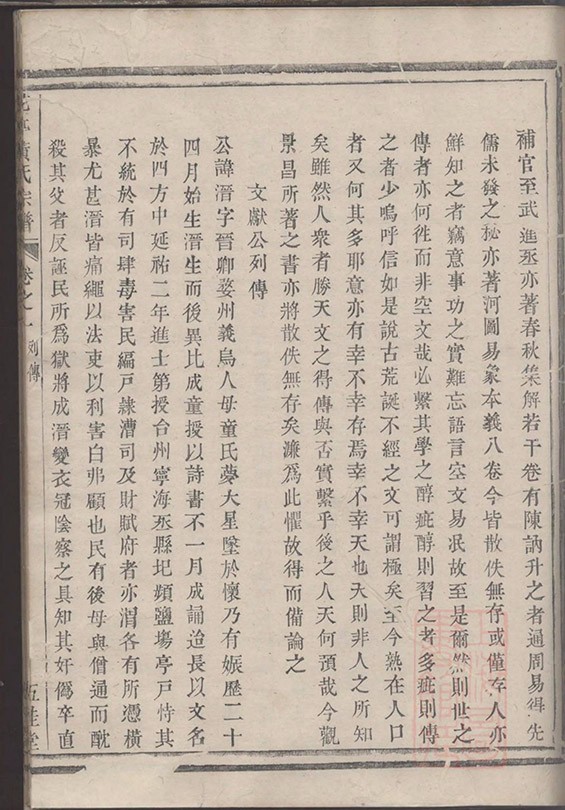 補官至武進丞亦著春秋集解若干卷有陳訥升之者通周易得先
儒未發之秘亦著河圖易象本義八卷今皆散佚無存或僅存人亦
鮮知之者竊意事功之實難忘語言空文易泯故至是爾然則世之
傳者亦何徃而非空文哉必繫其學之醇疵醇則習之者多疵則傳
之者少嗚呼信如是說古荒誕不經之文可謂極矣至今熟在人口
者又何其多耶意亦有幸不幸存焉幸不幸天也天則非人之所知
矣雖然人衆者勝天文之得傳與否實繫乎後之人天何預哉今觀
景昌所著之書亦將散佚無存矣濂爲此懼故得而備論之
文獻公列傳
公諱溍字晉卿婺州義烏人母童氏夢大星墜於懷乃有娠歷二十
四月始生溍生而後異比成童授以詩書不一月成誦迨長以文名
於四方中延祐二年進士第授台州寧海丞縣圯瀕鹽塲亭戸恃其
不統於有司肆毒害民編戸隷漕司及財賦府者亦謂各有所憑橫
暴尤甚溍皆痛繩以法吏以利害白弗顧也民有後母與僧通而酖
殺其父者反誣民所爲獄將成溍變衣冠陰察之具知其奸僞卒直
黃氏宗譜
卷之一
列傳
五桂堂